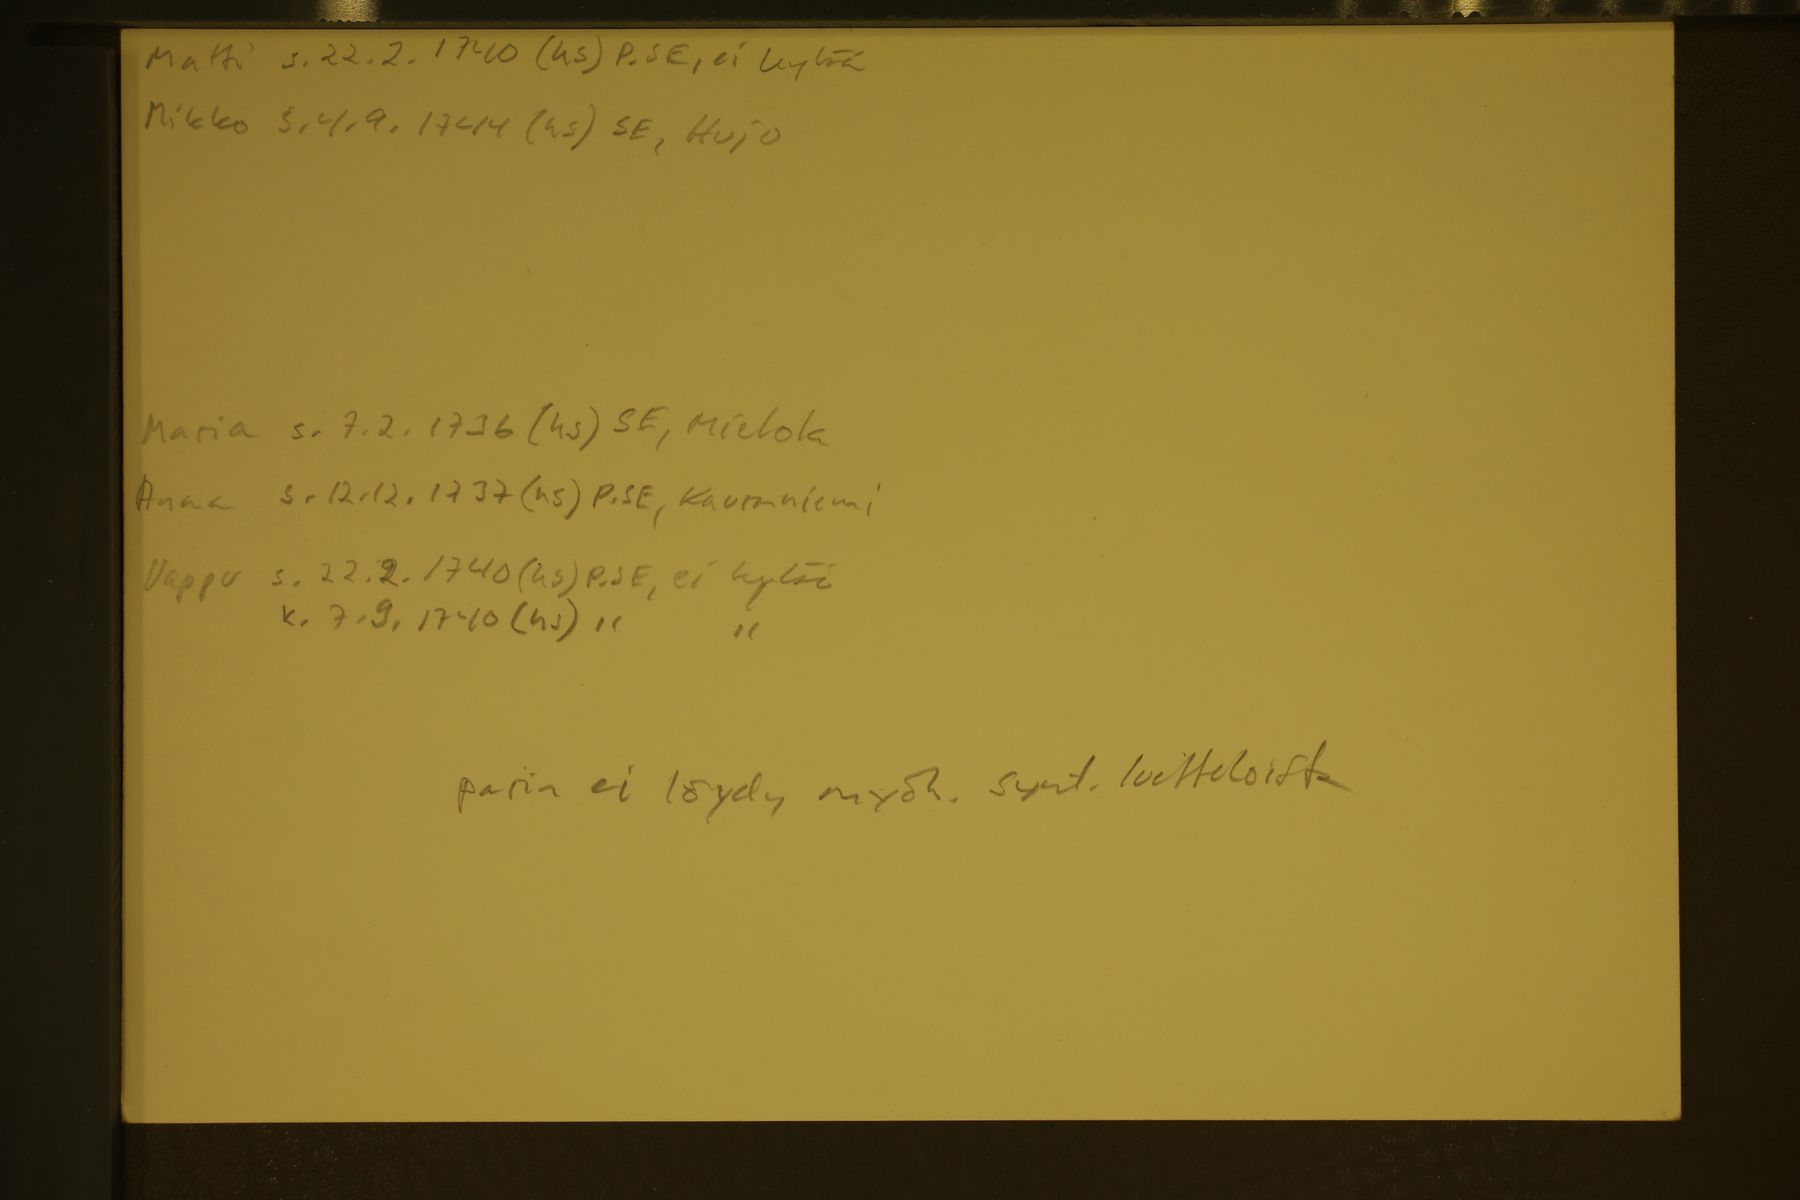 Matti s. 22.2. 1740 (ks) P.SE, ei kylää
Mikko s. 4.9. 1744 (ks) SE, Hujo
Maria s. 7.2. 1736 (ks) SE, Mielok
Anna s. 12.12. 1737 (ks) P.SE, Kaurnniemi
Vappu s. 22.2. 1740 (ks) P.SE, ei kylää
k. 7.9. 1740 (ks) " "
paria ei löydy myöh. synt. luetteloista